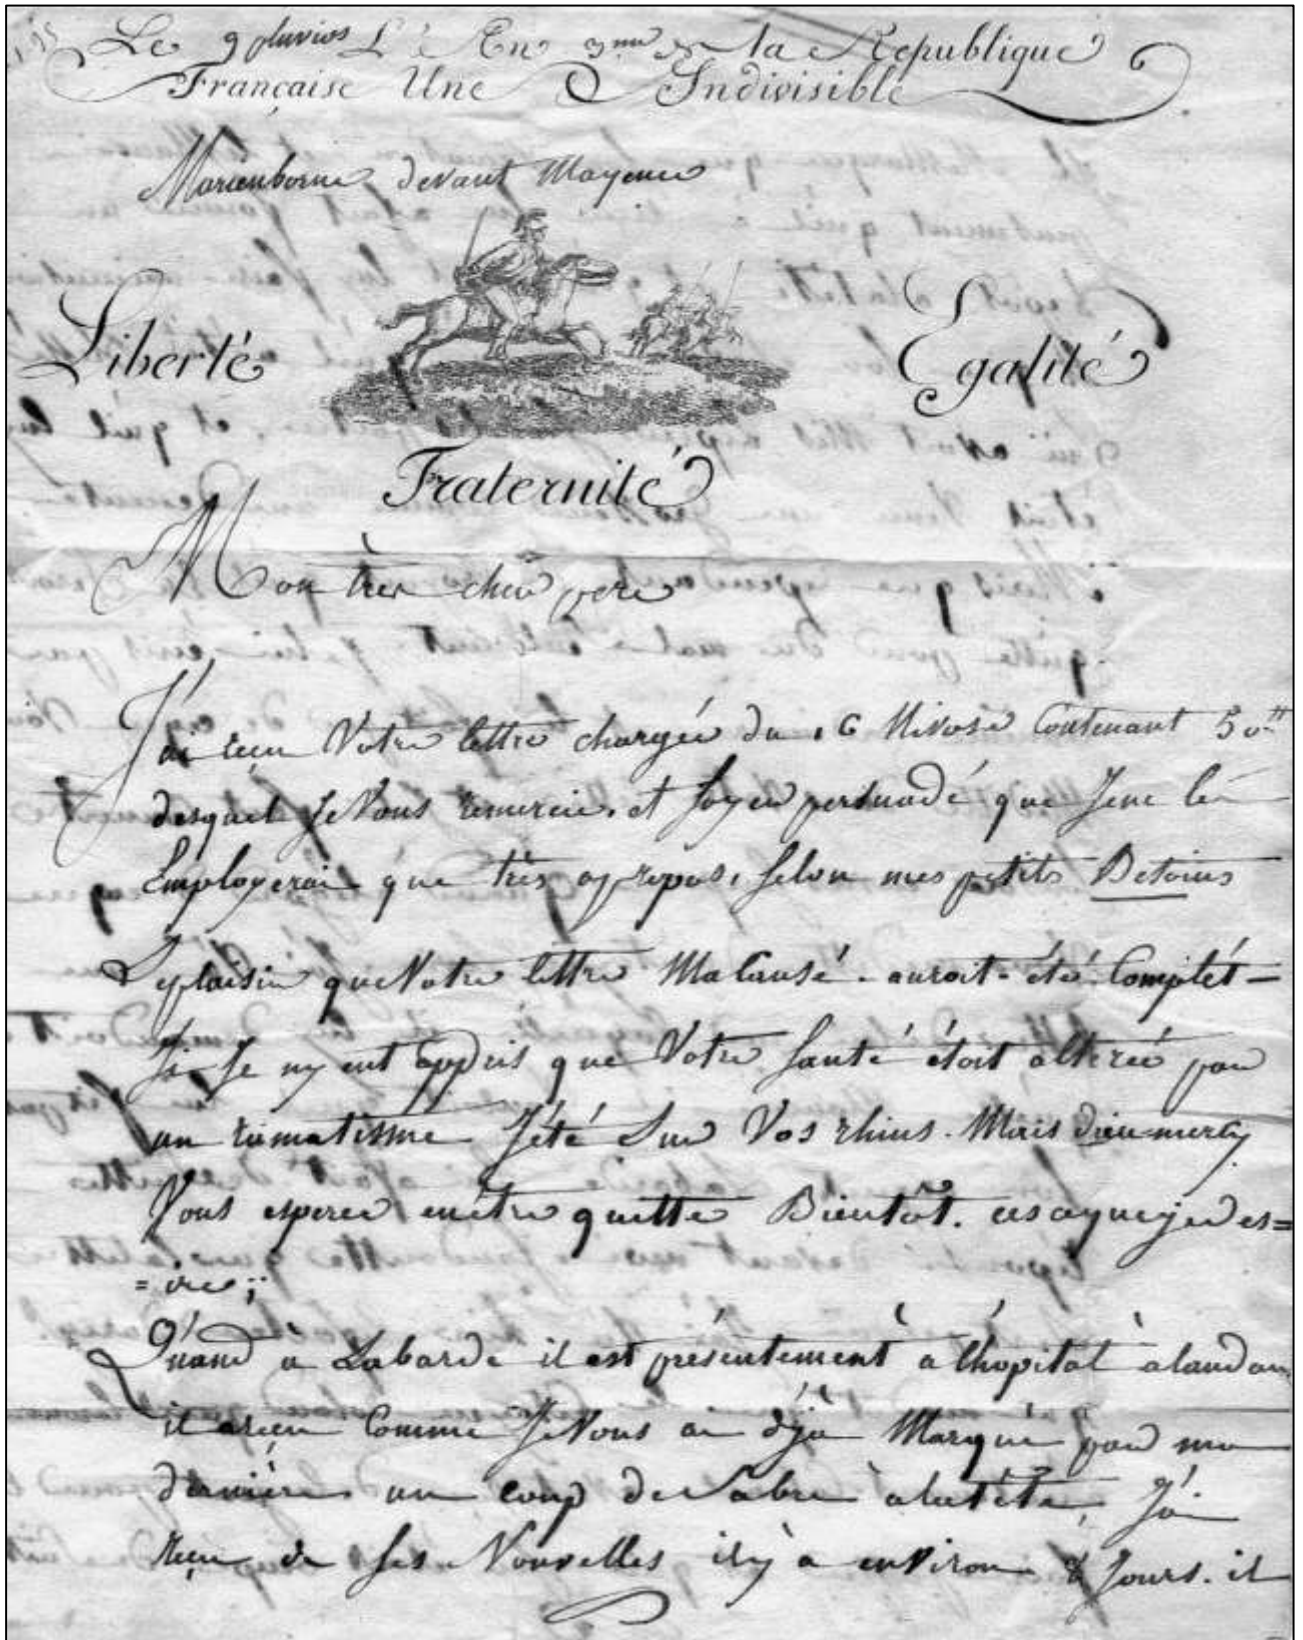 Le 9 pluvios L'An 3me de la Republique
Française Une & Indivisible
Marienborne devant Mayence
Liberté Egalité
Fraternité
Mon très cher pere
J'ai reçu Votre lettre chargée du 16 Nivose Contenant 50tt
desquel Je Vous remercie. et soyez persuadé que Je ne les
Employerai que très apropos, selon mes petits Besoins
Le plaisir que Votre lettre Ma Causé. auroit été Complét
Si Je ny eut appris que Votre santé étoit alterée par
un rumatisme Jété Sur Vos rhins. Mais dieu mercy
Vous esperez en être quitte Bientôt. ces ce que je des=
=ire;
Quand à Labarde il est présentement à l'hopital à landau
il a reçu Comme Je Vous ai déjà Marqué par ma
dernière un coup de Sabre à la tête, J'ai
reçu de ses Nouvelles il y a environ 8 Jours. il